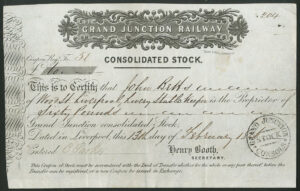 GRAND JUNCTION RAILWAY
CONSOLIDATED STOCK.
This is to Certify that John Betts
Wood St Liverpool, Livery Stable Keeper is the Proprietor of
Sixty Pounds
Grand Junction consolidated Stock.
Dated in Liverpool, this 13th day of February
Entered
Henry Booth,
SECRETARY.
This Coupon of Stock must be surrendered with the Deed of Transfer whether to the whole or any part thereof before the
Transfer can be registered or a new Coupon be issued in Exchange.
GRAND JUNCTION